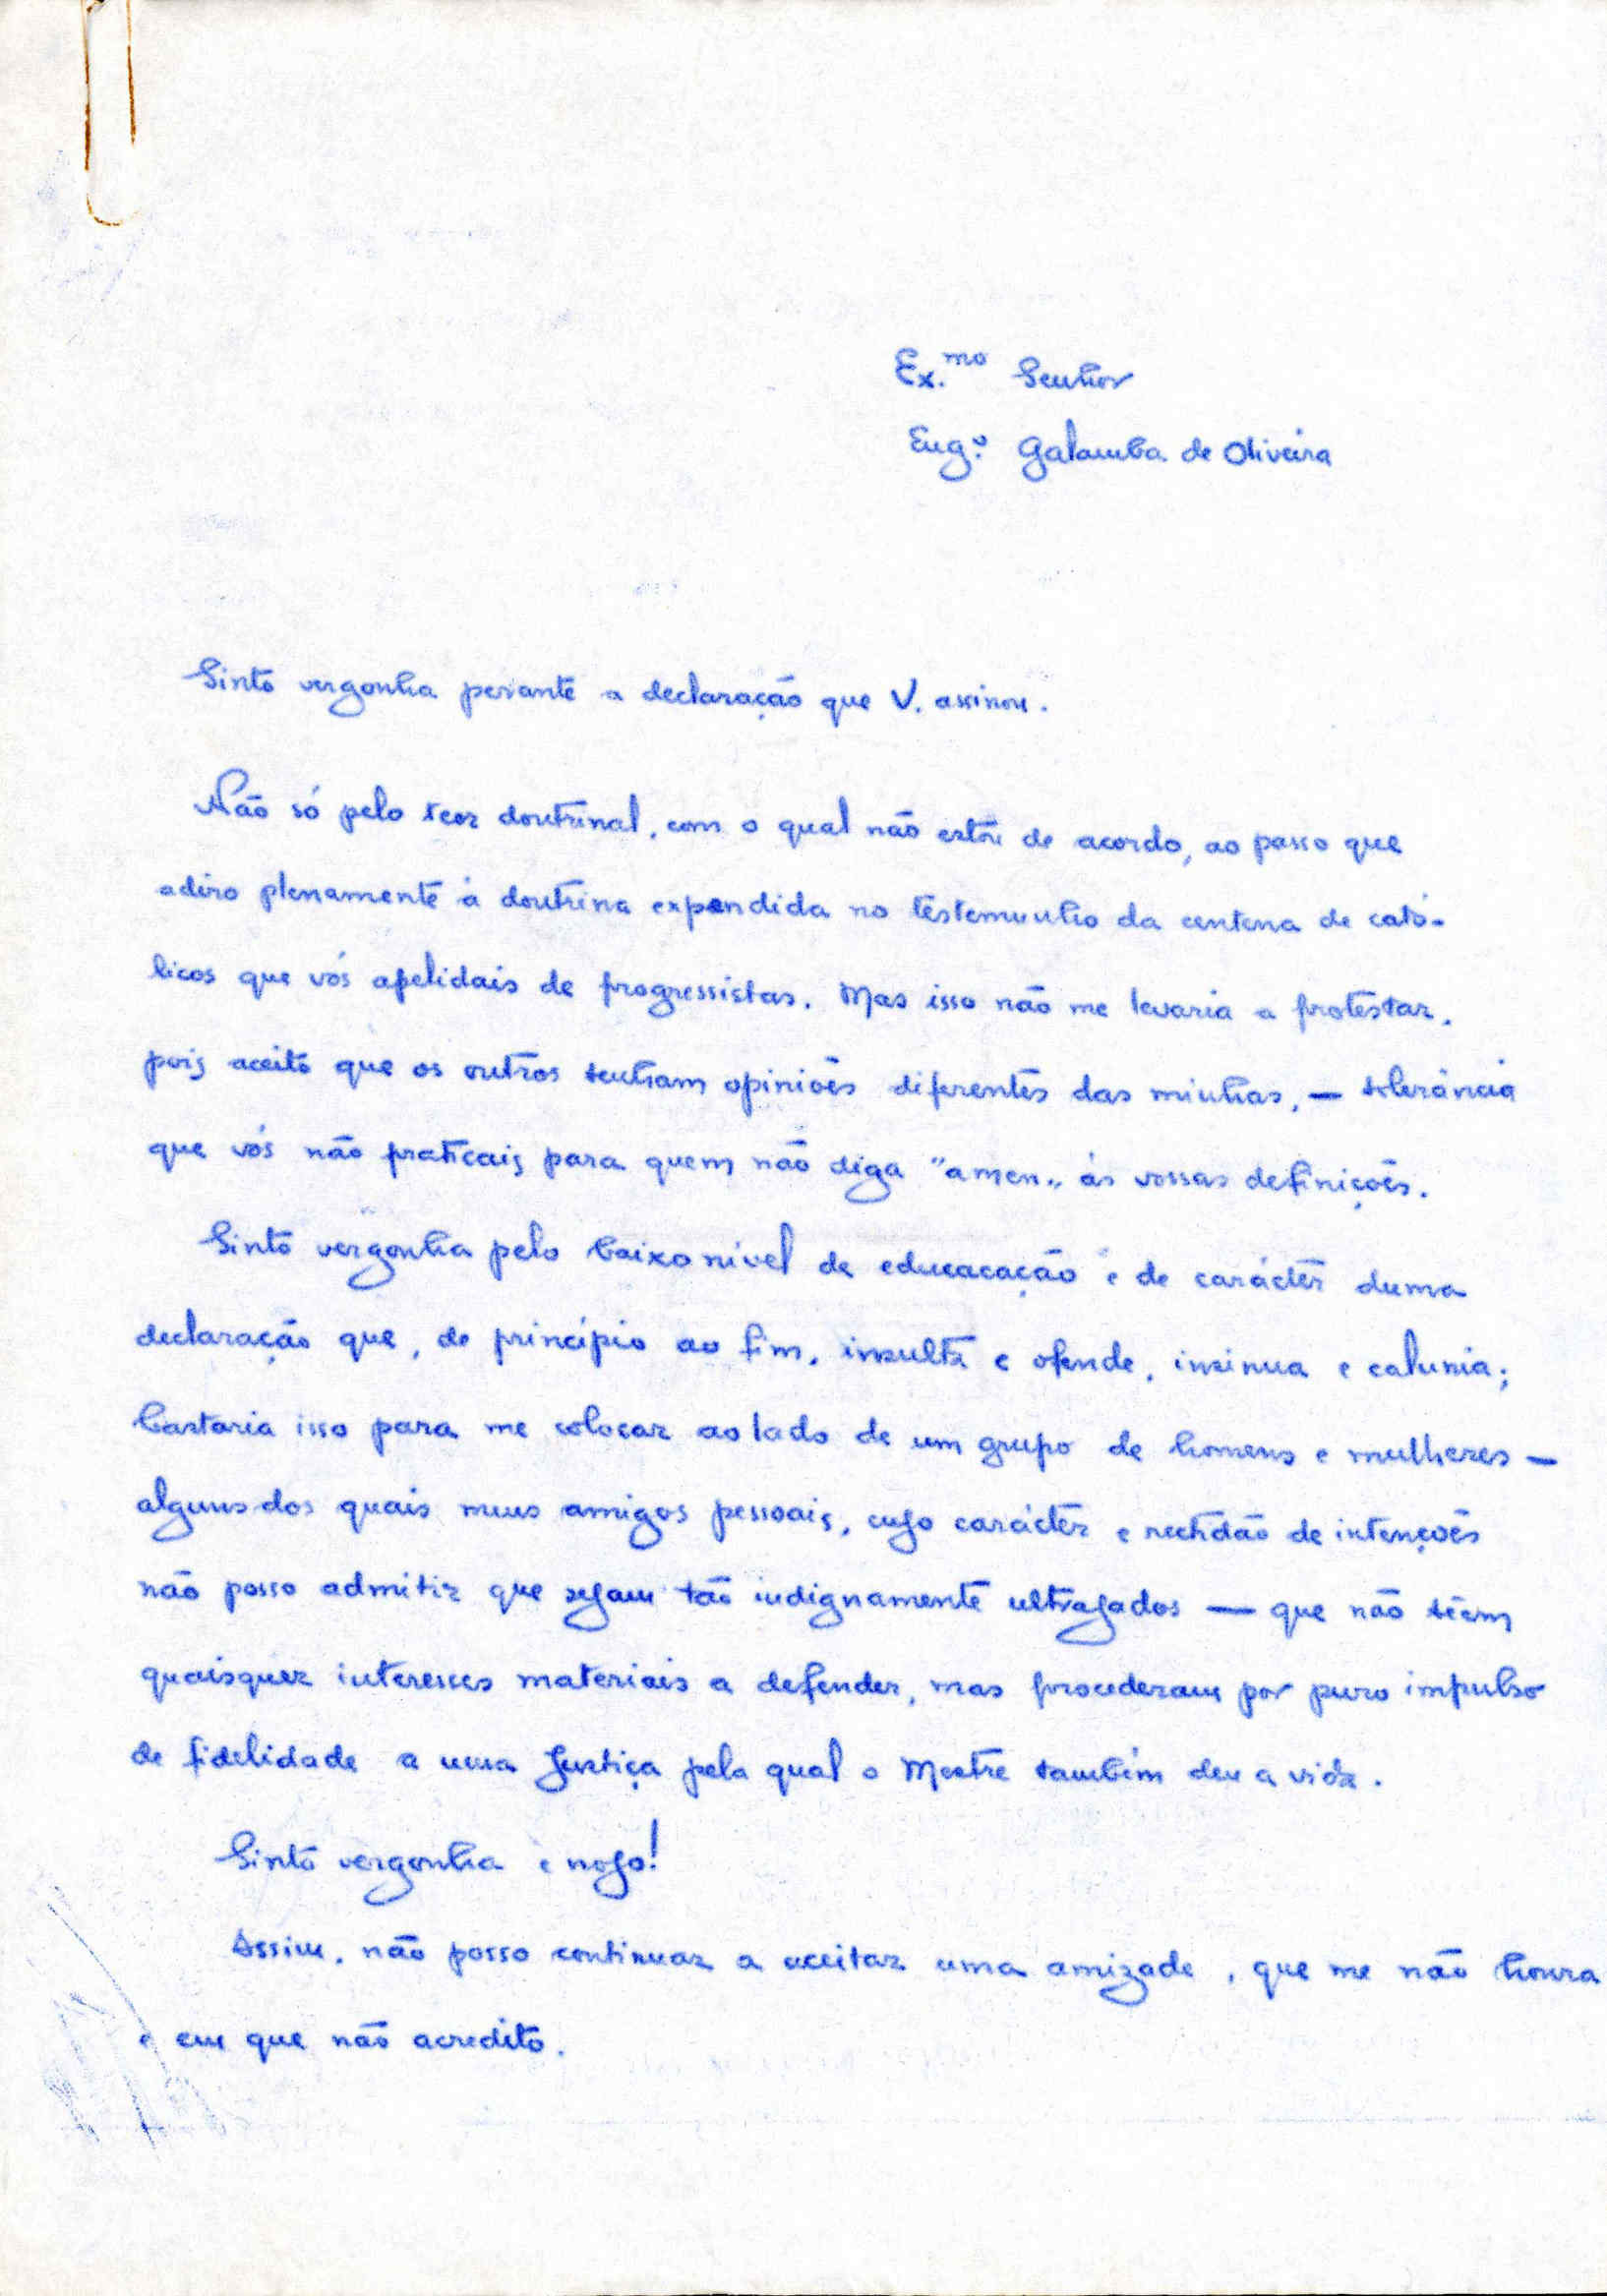 Ex.mo Senhor
Eng.º Galamba de Oliveira
Sinto vergonha perante a declaração que V. assinou.
Não só pelo teor doutrinal, com o qual não estou de acordo, ao passo que
adiro plenamente à doutrina expendida no testemunho da centena de cató-
licos que vós apelidais de progressistas. Mas isso não me levaria a protestar,
pois aceito que os outros tenham opiniões diferentes das minhas, — tolerância
que vós não praticais para quem não diga "amen" às vossas definições.
Sinto vergonha pelo baixo nível de educacação e de carácter duma
declaração que, de princípio ao fim, insulta e ofende, insinua e calunia;
bastaria isso para me colocar ao lado de um grupo de homens e mulheres —
alguns dos quais meus amigos pessoais, cujo carácter e rectidão de intenções
não posso admitir que sejam tão indignamente ultrajados — que não têem
quaisquer interesses materiais a defender, mas procederam por puro impulso
de fidelidade a uma Justiça pela qual o Mestre também deu a vida.
Sinto vergonha e nojo!
Assim, não posso continuar a aceitar uma amizade, que me não honra
e em que não acredito.